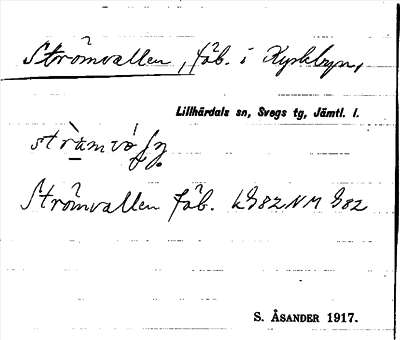 Strömvallen, fäb. i Kyrkbyn,
Lillhärdals sn, Svegs tg, Jämtl. l.
Strömvallen fäb. LG82NM G82
S. ÅSANDER 1917.